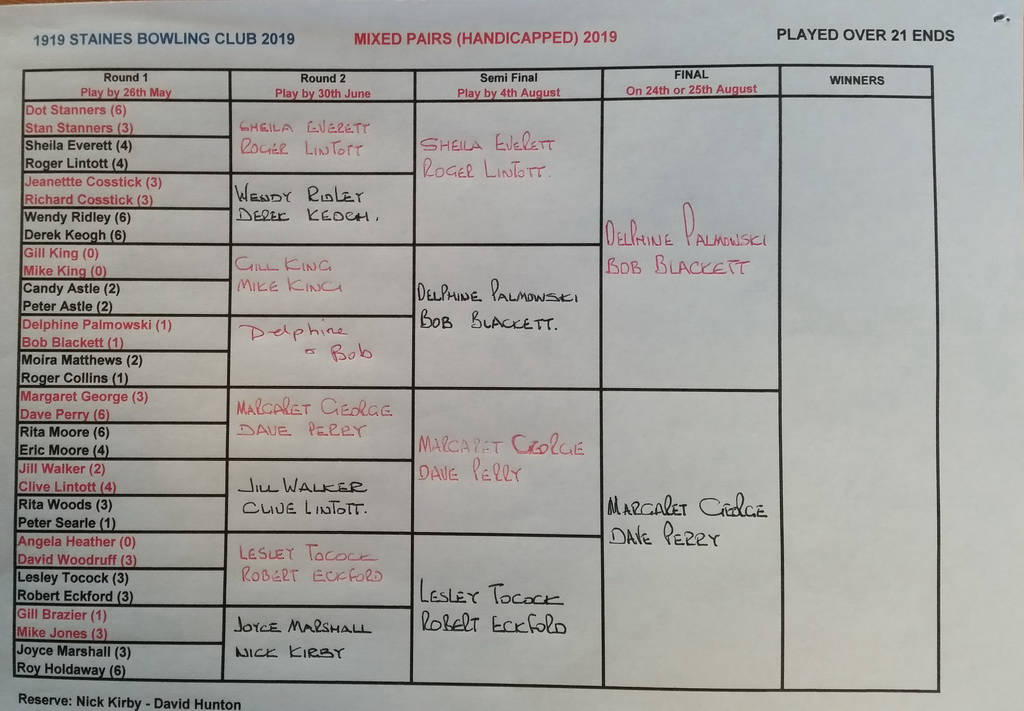 1919 STAINES BOWLING CLUB 2019
MIXED PAIRS (HANDICAPPED) 2019
PLAYED OVER 21 ENDS
Round 1
Play by 26th May
Round 2
Play by 30th June
Semi Final
Play by 4th August
FINAL
On 24th or 25th August
WINNERS
Dot Stanners (6)
Stan Stanners (3)
Sheila Everett (4)
Roger Lintott (4)
Jeanettte Cosstick (3)
Richard Cosstick (3)
Wendy Ridley (6)
Derek Keogh (6)
Gill King (0)
Mike King (0)
Candy Astle (2)
Peter Astle (2)
Delphine Palmowski (1)
Bob Blackett (1)
Moira Matthews (2)
Roger Collins (1)
Margaret George (3)
Dave Perry (6)
Rita Moore (6)
Eric Moore (4)
Jill Walker (2)
Clive Lintott (4)
Rita Woods (3)
Peter Searle (1)
Angela Heather (0)
David Woodruff (3)
Lesley Tocock (3)
Robert Eckford (3)
Gill Brazier (1)
Mike Jones (3)
Joyce Marshall (3)
Roy Holdaway (6)
SHEILA EVERETT
ROGER LINTOTT
WENDY RIDLEY
DEREK KEOGH.
GILL KING
MIKE KING
Delphine
& Bob
MARGARET GEORGE
DAVE PERRY
JILL WALKER
CLIVE LINTOTT.
LESLEY TOCOCK
ROBERT ECKFORD
JOYCE MARSHALL
NICK KIRBY
SHEILA EVERETT
ROGER LINTOTT.
DELPHINE PALMOWSKI
BOB BLACKETT.
MARGARET GEORGE
DAVE PERRY
LESLEY TOCOCK
ROBERT ECKFORD
DELPHINE PALMOWSKI
BOB BLACKETT
MARGARET GEORGE
DAVE PERRY
Reserve: Nick Kirby - David Hunton